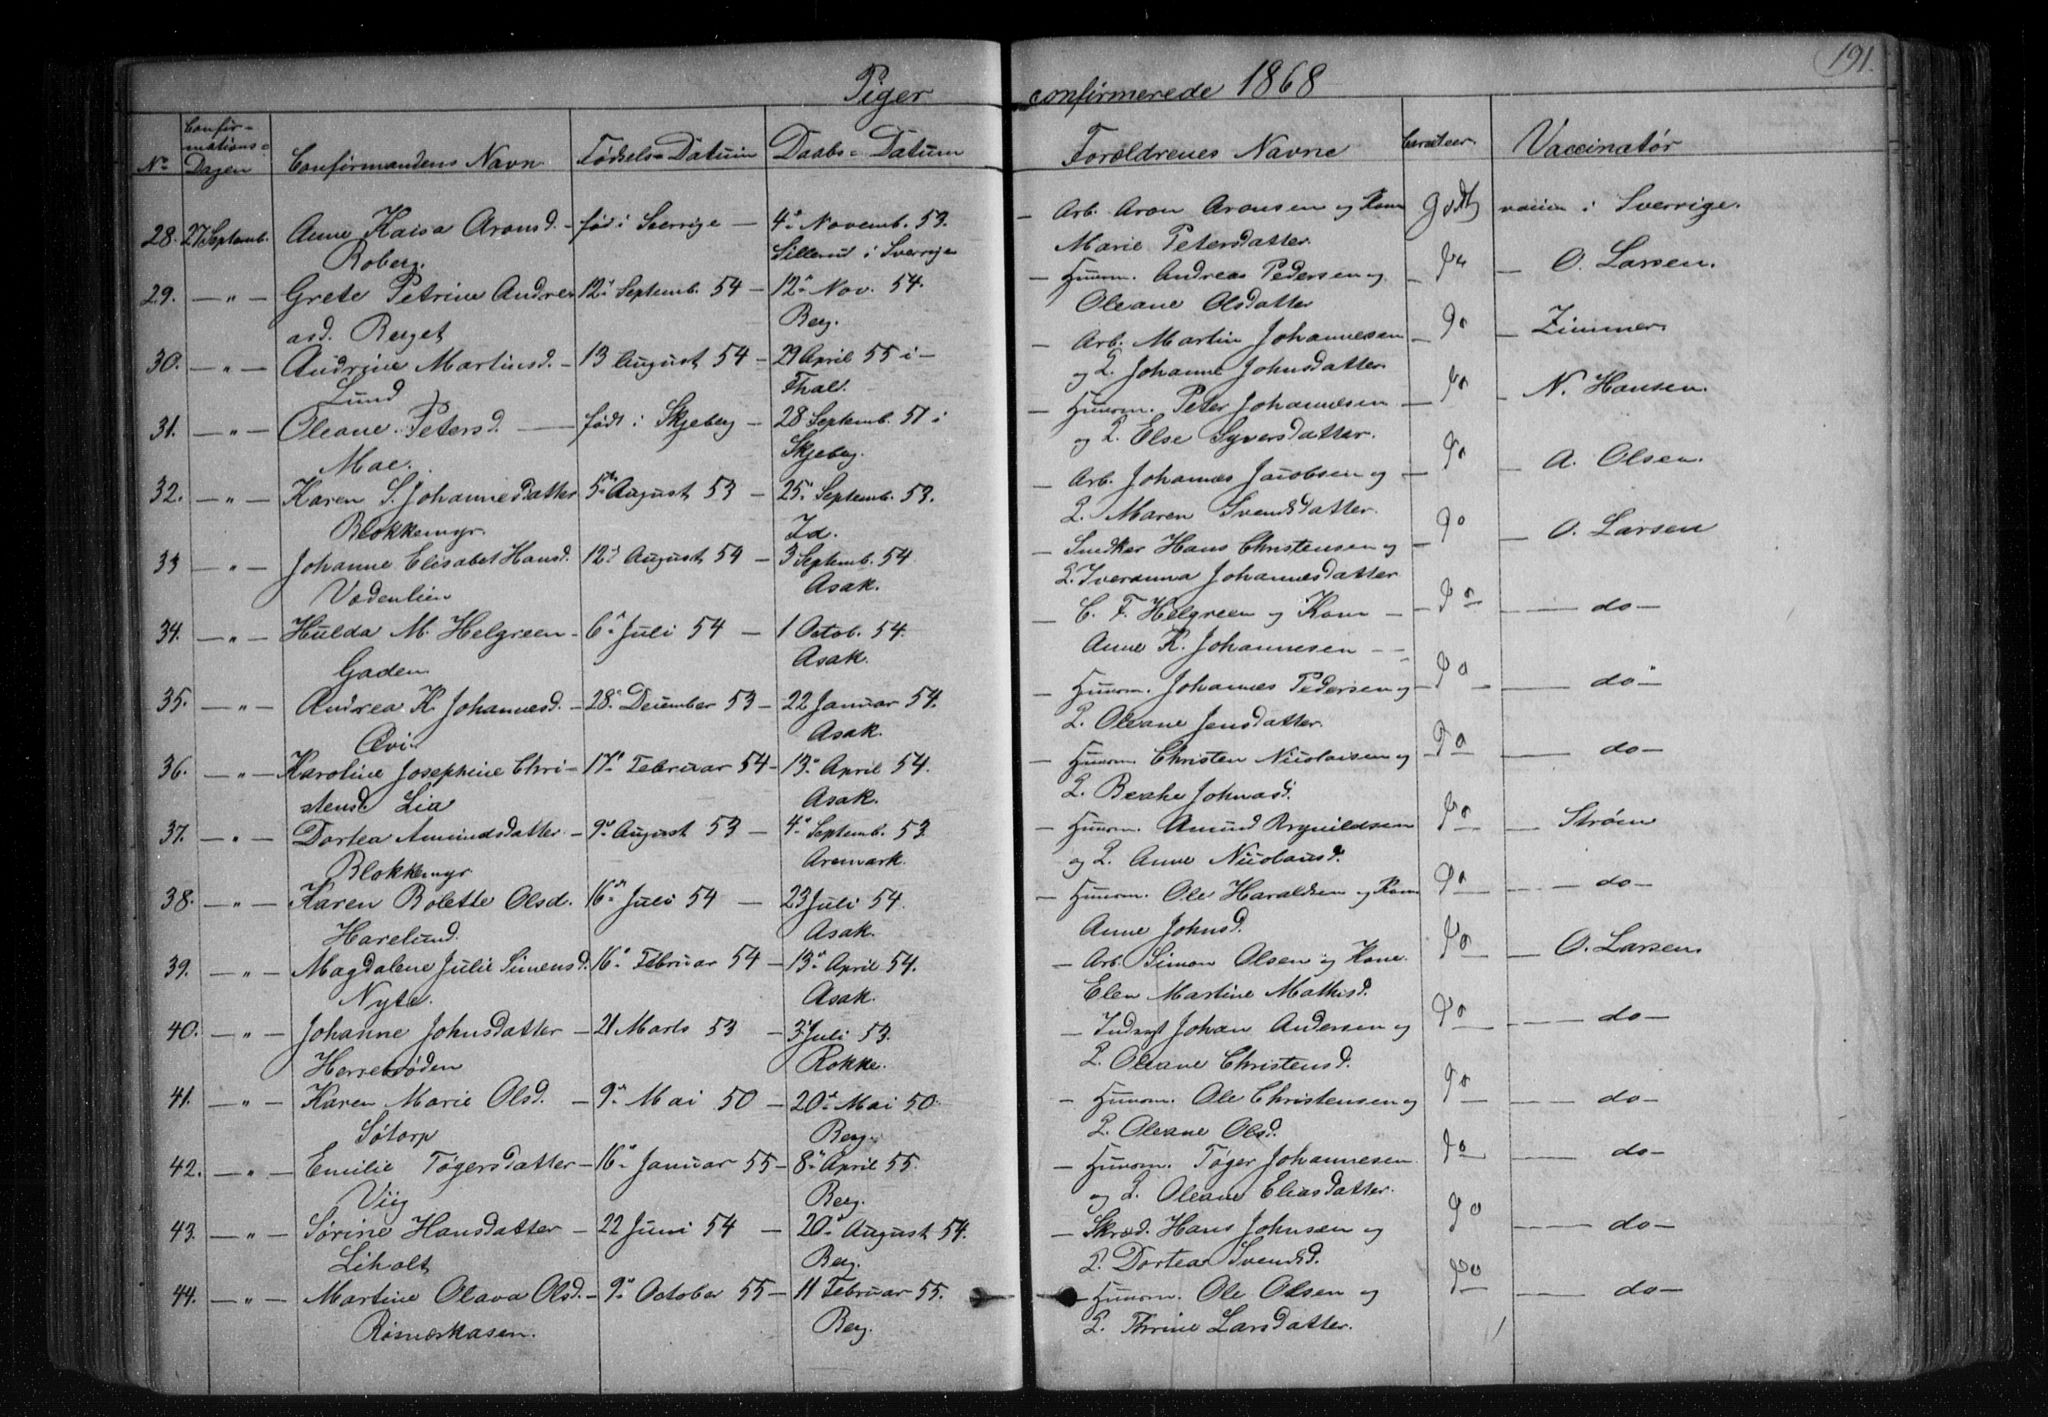 191.
Piger confirmerede 1868
No Confirmations-Dagen Confirmandens Navn Fødsels-Datum Daabs-Datum Forældrenes Navne Vaccinatør
28. 27 Septemb. Anne Kaisa Aronsd. – fød i Sverrige – 4de Novemb. 53. – Arb. Aron Aronsen og Kone godt vaccin i Sverrige.
Roberg. Sillerud i Sverrige Marie Petersdatter.
29. – " – Grete Petrine Andre- 12te Septemb. 54 – 12te Nov. 54. – Huusm. Andreas Pedersen og – do – O. Larsen.
asd. Berget Berg. Oleane Olsdatter
30. – " – Andrine Martinsd. – 13 August 54 – 29 April 55 i – – Arb. Martin Johannesen – do – Zimmer
Lund Thal. og P. Johanne Johnsdatter.
31. – " – Oleane Petersd. – født i Skjeberg – 28 Septemb. 51 i – Huusm. Peter Johannesen – do – N. Hansen.
Moe. Skjeberg. og P. Else Syversdatter.
32. – " – Karen S. Johannesdatter 5te August 53 – 25 Septemb. 53. – Arb. Johannes Jacobsen og – do – A. Olsen.
Blokkemyr. Id. P. Maren Svendsdatter.
33 – " – Johanne Elisabet Hansd. 12te August 54 – 3 Septemb. 54 – Snedker Hans Christensen og – do – O. Larsen
Vadenlien Asak. P. Iveranna Johannesdatter
34. – " – Hulda M. Helgreen – 6te Juli 54 – 1 Octob. 54. – C. F. Helgreen og Kone – do – do –
Gaden Asak. Anne K. Johannesen – –
35. – " – Andrea K. Johannesd. – 28de December 53 – 22 Januar 54. – Huusm. Johannes Pedersen og – do – do –
Asak. P. Oleane Jensdatter.
36. – " – Karoline Josephine Chri- – 17de Februar 54 – 13de April 54. – Huusm. Christen Nicolaisen og – do – do –
stensd. Lia Asak. P. Berthe Johnasd.
37. – " – Dortea Amundsdatter – 9de August 53 – 4de Septemb. 53 – Huusm. Amund Brynildsen do – Strøm
Blokkemyr Aremark. og P. Anne Nicolausd.
38. – " – Karen Bolette Olsd. 16de Juli 54 – 23 Juli 54. – Huusm. Ole Haraldsen og Kone do – do –
Harelund. Asak. Anne Johnsd.
39. – " – Magdalene Julie Simensd. 16de Februar 54 – 13de April 54. – Arb. Simon Olsen og Kone. do – O. Larsen
Nyte. Asak. Elen Martine Mathisd.
40. – " – Johanne Johnsdatter – 21 Marts 53 – 3 Juli 53. – Johan Andersen og do – do –
Herrebrøden Rokke. P. Oleane Christensd.
41. – " – Karen Marie Olsd. – 9de Mai 50 – 20de Mai 50. – Huusm. Ole Christensen og do – do –
Søtorp Berg. P. Oleane Olsd.
42. – " – Emilie Tøgersdatter – 16de Januar 55 – 8de April 55. – Huusm. Tøger Johannesen do – do –
Viig Berg. og P. Oleane Eliasdatter.
43. – " – Sørine Hansdatter – 22 Juni 54 – 20de August 54. – Skræd. Hans Johnsen og do – do –
Liholt Berg. P. Dortea Svendsd.
44. – " – Martine Olava Olsd. – 9de October 55 – 11 Februar 55. – Huusm. Ole Olsen og do – do –
Berg. P. Thrine Larsdatter.